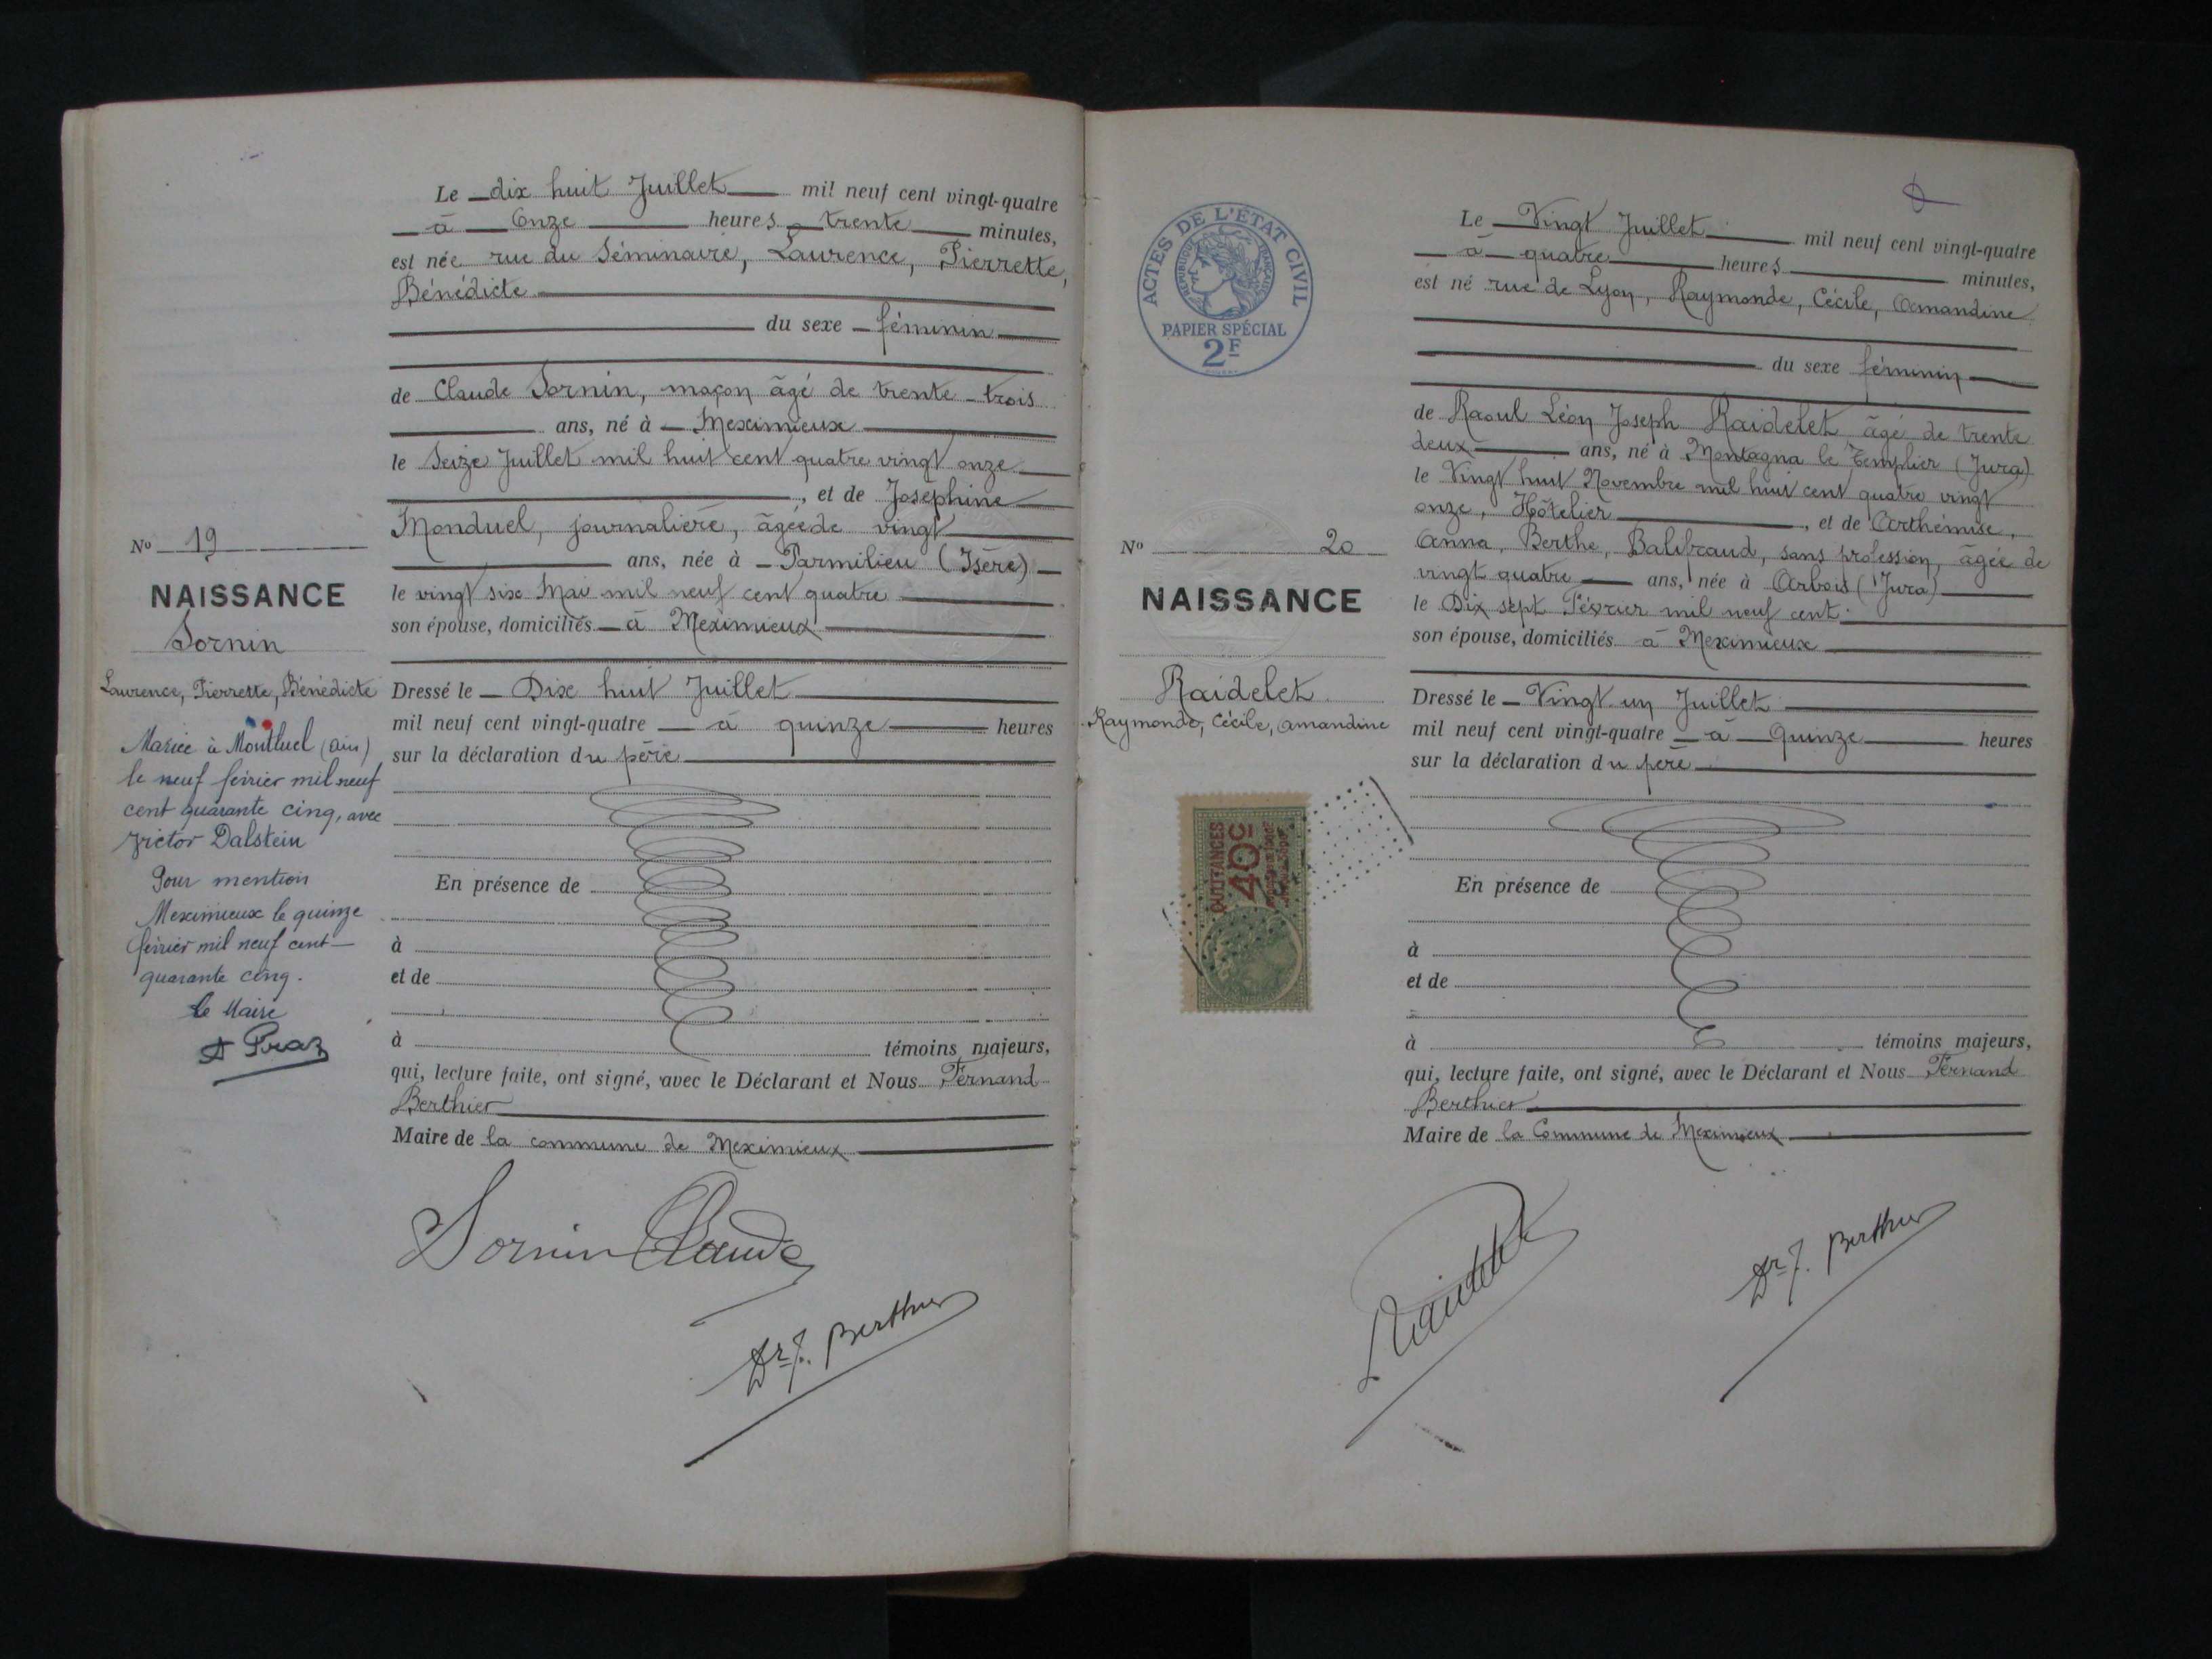 Le dix huit Juillet mil neuf cent vingt-quatre
à Onze heures trente minutes,
est née rue du Séminaire, Laurence, Pierrette,
Bénédicte
du sexe féminin
de Claude Sornin, maçon âgé de trente-trois
ans, né à Meximieux
le Seize Juillet mil huit cent quatre vingt onze
, et de Joséphine
Monduel, journalière, âgée de vingt
ans, née à Parmilieu (Isère)
le vingt six Mai mil neuf cent quatre
son épouse, domiciliés à Meximieux
Dressé le Dix huit Juillet
mil neuf cent vingt-quatre à quinze heures
sur la déclaration du père
En présence de
à
et de
à témoins majeurs,
qui, lecture faite, ont signé, avec le Déclarant et Nous Fernand
Berthier
Maire de la commune de Meximieux
Sornin Claude
Dr F. Berthier
No 19
NAISSANCE
Sornin
Laurence, Pierrette, Bénédicte
Mariée à Montluel (Ain)
le neuf février mil neuf
cent quarante cinq, avec
Victor Dalstein
Pour mention
Meximieux le quinze
février mil neuf cent
quarante cinq.
Le Maire
ACTES DE L'ÉTAT CIVIL
RÉPUBLIQUE FRANÇAISE
PAPIER SPÉCIAL
2F
No 20
NAISSANCE
Raidelet
Raymonde, Cécile, Amandine
QUITTANCES
40c
Le Vingt Juillet mil neuf cent vingt-quatre
à quatre heures minutes,
est né rue de Lyon, Raymonde, Cécile, Amandine
du sexe féminin
de Raoul Léon Joseph Raidelet âgé de trente
deux ans, né à Montagna le Templier (Jura)
le Vingt huit Novembre mil huit cent quatre vingt
onze, Hôtelier, et de Arthémise,
Anna, Berthe, Balifraud, sans profession, âgée de
vingt quatre ans, née à Arbois (Jura)
le Dix sept Février mil neuf cent
son épouse, domiciliés à Meximieux
Dressé le Vingt un Juillet
mil neuf cent vingt-quatre à Quinze heures
sur la déclaration du père
En présence de
à
et de
à témoins majeurs,
qui, lecture faite, ont signé, avec le Déclarant et Nous Fernand
Berthier
Maire de la Commune de Meximieux
Raidelet
Dr F. Berthier